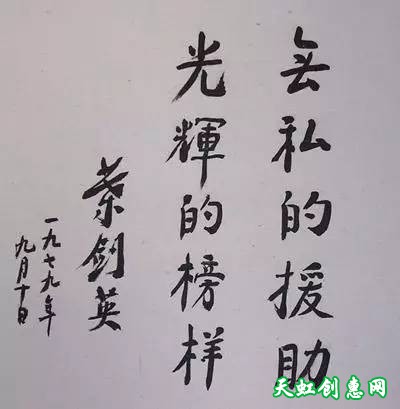 无私的援助
光輝的榜样
葉剑英
一九七九年
九月十日
天虹创惠网